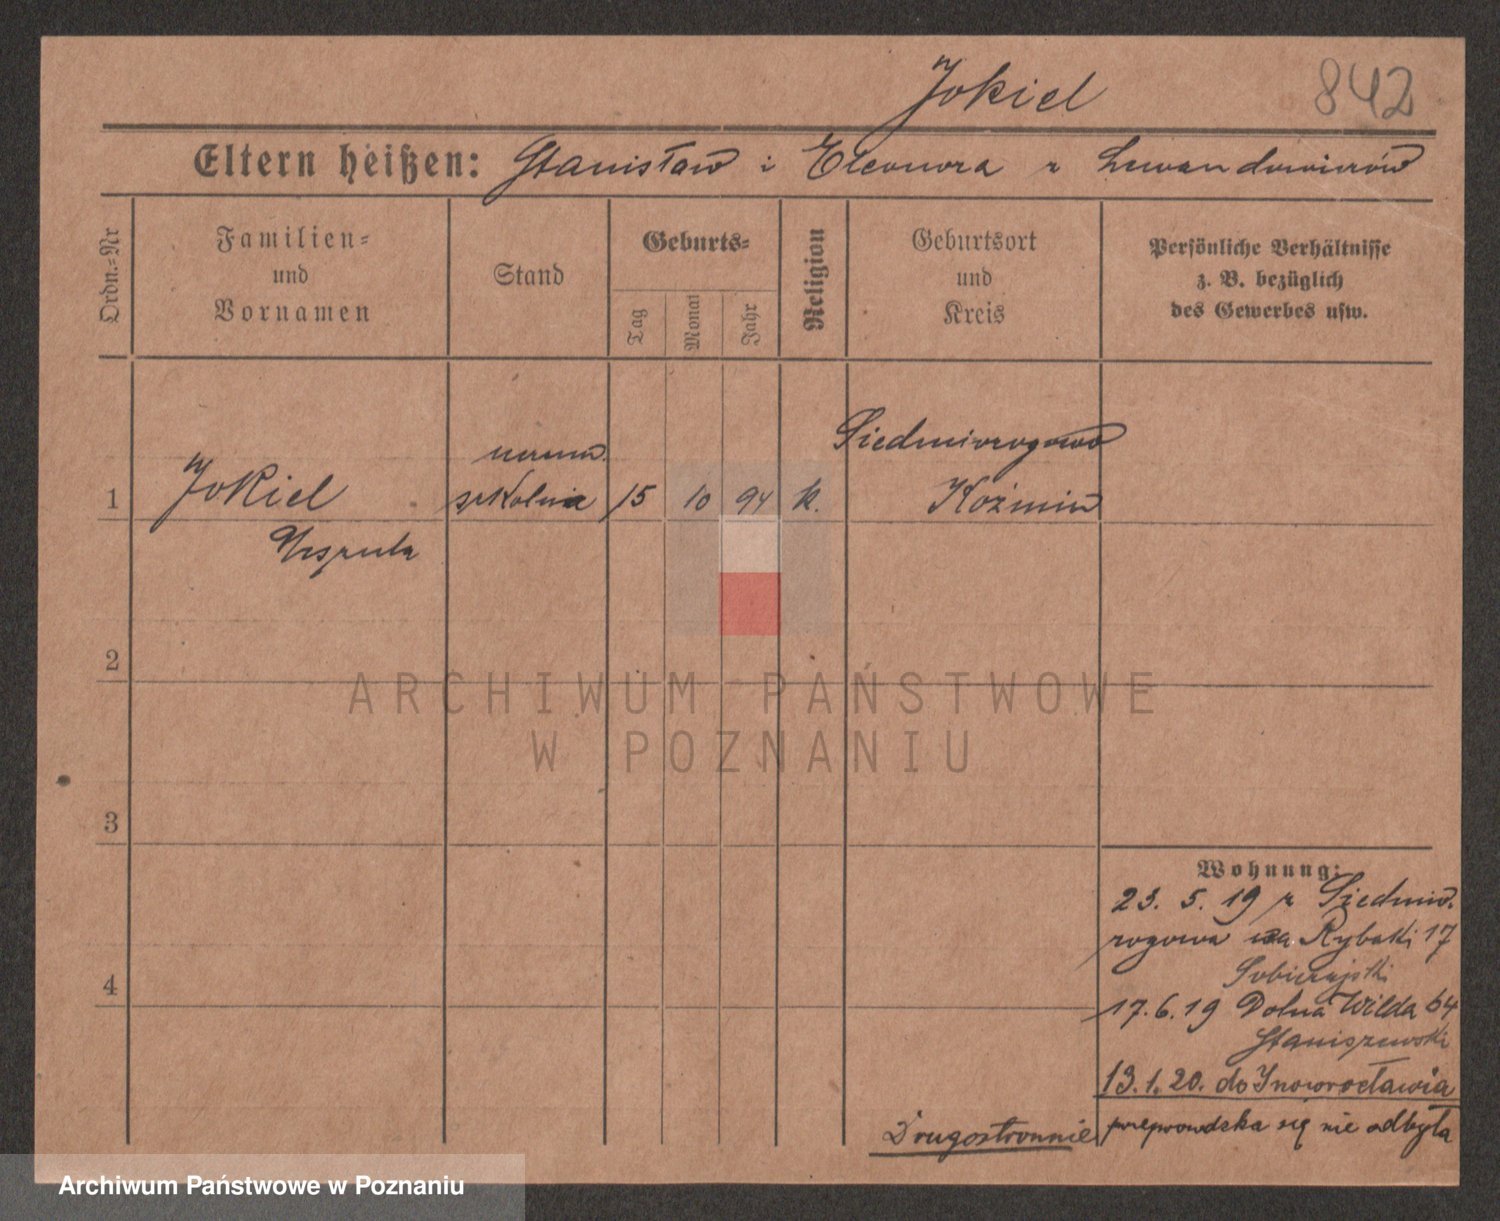 Jokiel 842
Eltern heißen: Stanisław i Eleonora z Lewandowiczów
Ordn.-Nr
Familien-
und
Vornamen
Stand
Geburts-
Tag
Monat
Jahr
Religion
Geburtsort
und
Kreis
Persönliche Verhältnisse
z. B. bezüglich
des Gewerbes usw.
1
Jokiel
Urszula
szkolna
15 10 94 k.
Siedmiorogowo
Koźmin
2
3
4
Wohnung:
23. 5. 19 z Siedmio-
rogowa na Rybaki 17
17. 6. 19 Dolna Wilda 64
Staniszewski
13. 1. 20. do Inowrocławia
przeprowadzka się nie odbyła
Drugostronnie
ARCHIWUM PAŃSTWOWE
W POZNANIU
Archiwum Państwowe w Poznaniu